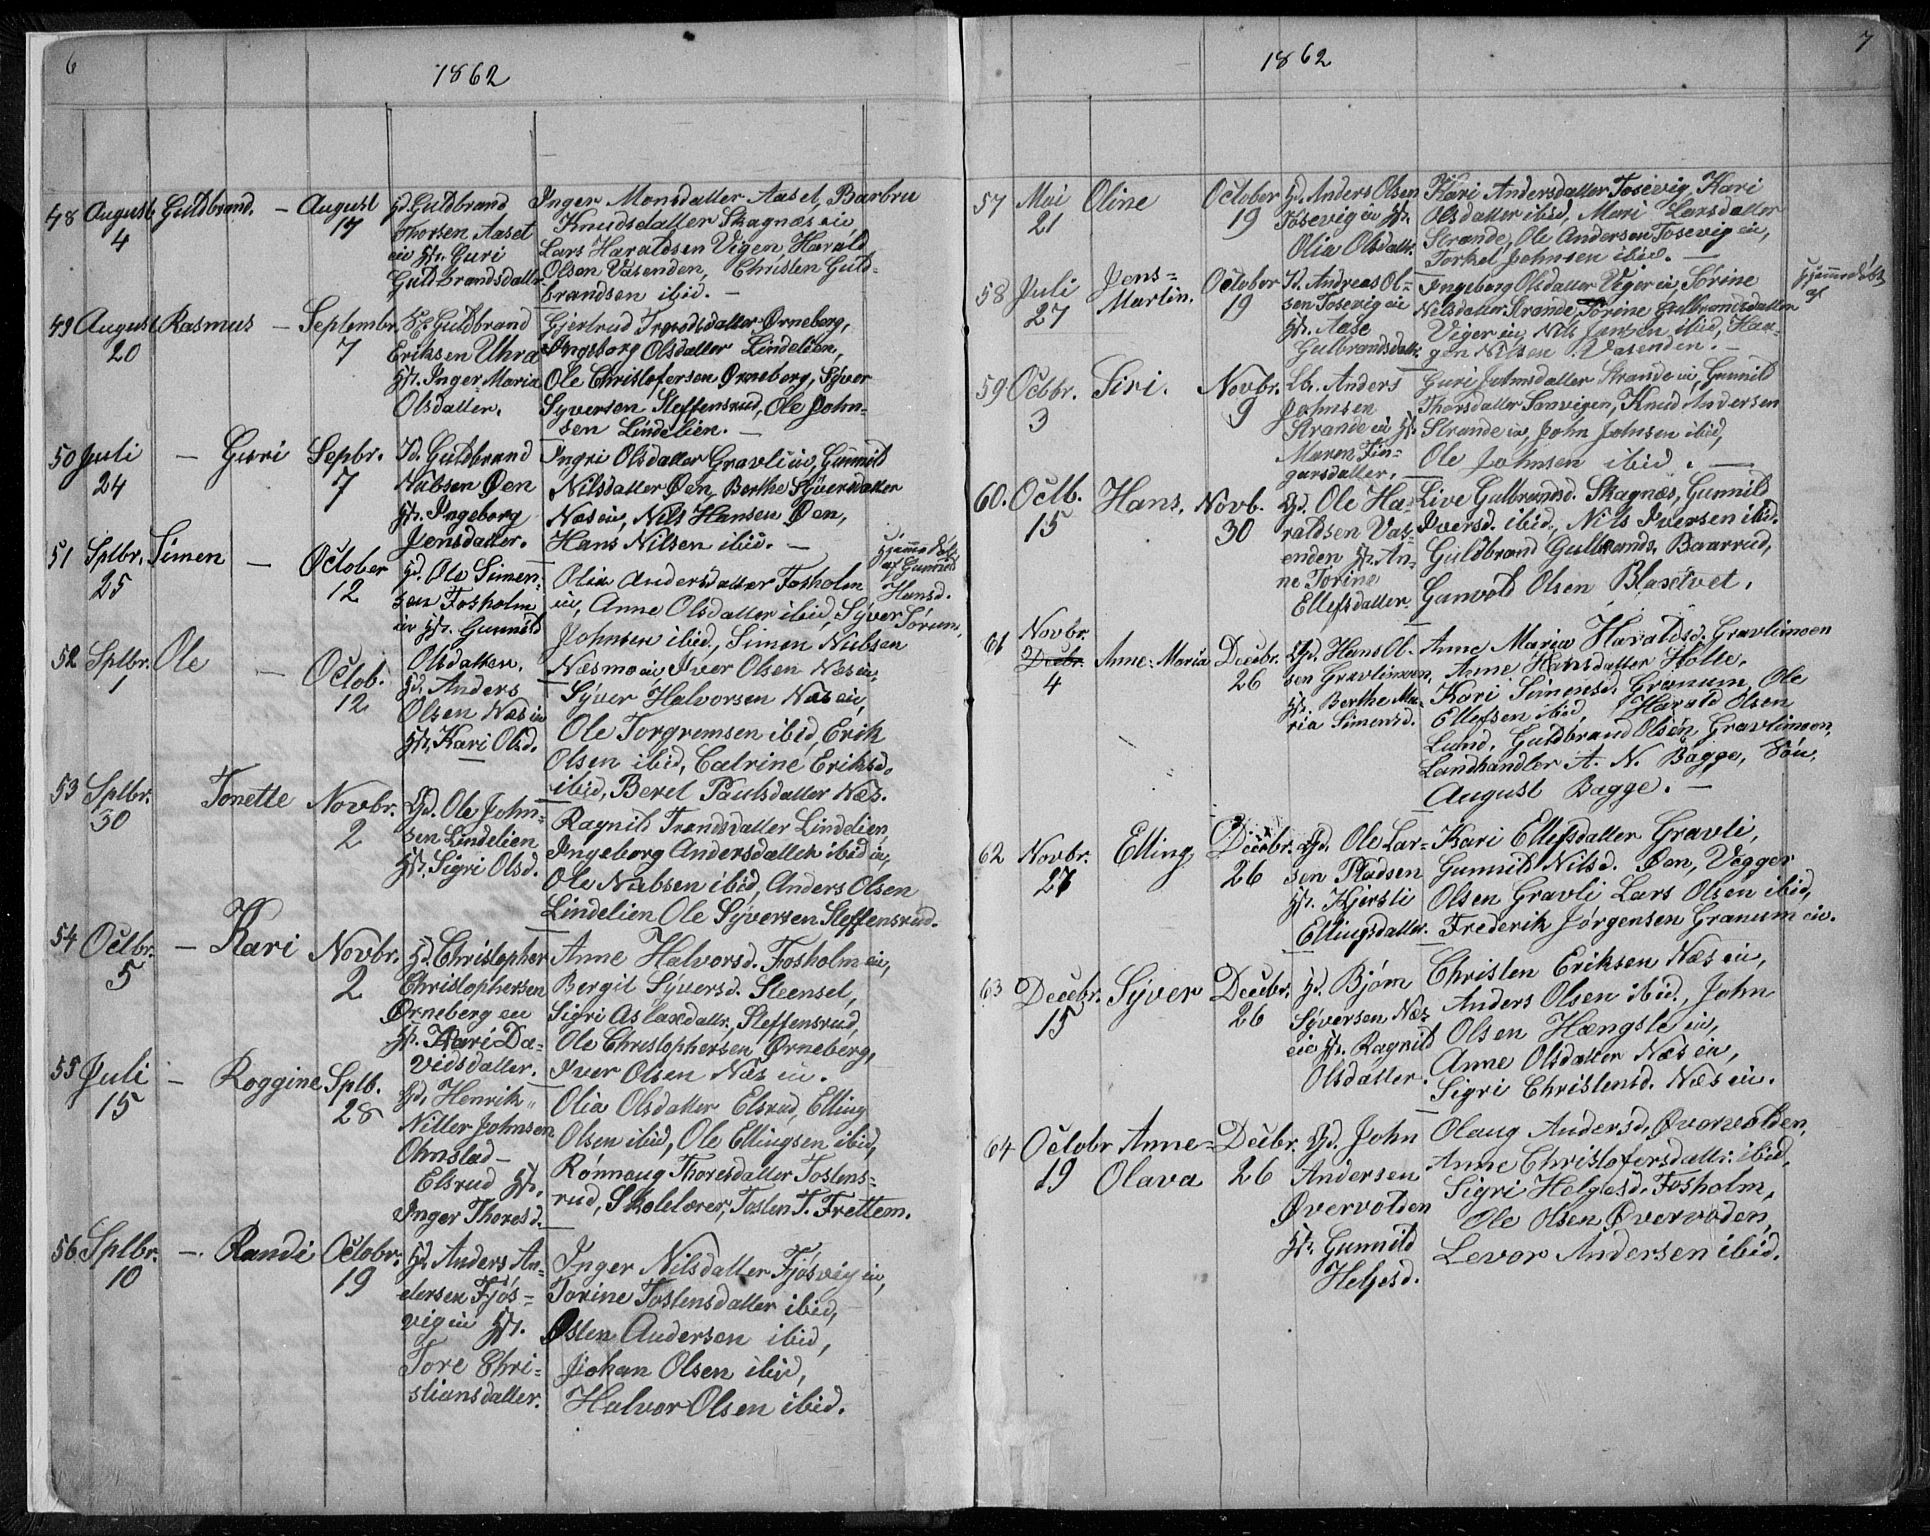 6
1862
48 August 4 Guldbrand. — August 17
Gd. Guldbrand
Thorsen Aaset
eie Hst. Guri
Guldbrandsdatter
Inger Monsdatter Aaset, Barbru
Knudsdatter Skagnæs eie
Lars Haraldsen Vigen, Harald
Olsen Vasenden, Christen Guld-
brandsen ibid. —
49 August 20 Rasmus — Septembr. 7
Guldbrand
Eriksen Uhra
Hst. Inger Maria
Olsdatter.
Gjertrud Ørneberg,
Ingeborg Olsdatter Lindelien,
Ole Christofersen Ørneberg, Syver
Syversen Steffensrud, Ole John-
sen Lindelien. —
50 Juli 24 — Guri Sepbr. 7
Guldbrand
Nilsen Øen
Hst. Ingeborg
Jensdatter.
Ingri Olsdatter Gravli eie, Gunnild
Nilsdatter Øen, Berthe Syversdatter
Næs eie, Nils Hansen Øen,
Hans Nilsen ibid. —
51 Sptbr. 25 Simen — October 12
Gd. Ole Simen-
sen Fosholm
eie Hst. Gunnild
Olsdatter.
Olia Andersdatter Fosholm
eie, Anne Olsdatter ibid, Syver
Johnsen ibid., Simen Nilsen
Næsmo eie, Iver Olsen Næs eie,
Hjemmedøbt
af Gunnild
Hansd.
Sørum.
52 Sptbr. 1 Ole — Octob. 12
Gd. Anders
Olsen Næs eie
Hst. Kari Olsd.
Syver Halvorsen Næs eie,
Ole Torgremsen ibid, Erik
Olsen ibid, Catrine Eriksd.
ibid, Beret Paulsdatter Næs.
53 Sptbr. 30 Tonette Novbr. 2
Gd. Ole John-
sen Lindelien
Hst. Sigri Olsd.
Ragnild Trondsdatter Lindelien,
Ingeborg Andersdatter ibid eie,
Ole Nilsen ibid, Anders Olsen
Lindelien Ole Syversen Steffensrud.
54 Octbr. 5 — Kari Novbr. 2
Gd. Christopher
Christophersen
Ørneberg eie
Hst. Kari Da-
vidsdatter.
Anne Halvorsd. Fosholm eie,
Bergit Syversd. Steenset,
Sigri Aslaxdatr. Steffensrud,
Ole Christophersen Ørneberg,
Iver Olsen Næs eie.
55 Juli 15 — Roggine Sptb. 28
Gd. Henrik
Nitter Johnsen
Ohnstad —
Elsrud Hst.
Inger Thoresd.
Olia Olsdatter Elsrud, Elling
Olsen ibid, Ole Ellingsen ibid,
Rønnaug Thoresdatter Tostens-
rud, Skolelærer, Tosten T. Frettem.
56 Sptbr. 10 — Randi Octobr. 19
Gd. Anders An-
dersen Fjøs-
vig eie Hst.
Tore Chri-
stiansdatter.
Inger Nilsdatter Fjøsvig eie,
Torine Tostensdatter ibid,
Østen Andersen ibid,
Johan Olsen ibid,
Halvor Olsen ibid.
7
1862
57 Mai 21 Oline October 19
Gd. Anders Olsen
Tosevig eie Hst.
Olia Olsdatr.
Kari Andersdatter Tosevig, Kari
Olsdatter ibid, Mari Larsdatter
Strande, Ole Andersen Tosevig eie,
Torkel Johnsen ibid. —
58 Juli 27 Jens-
Martin. October 19
Andreas Ol-
sen Tosevig eie
Hst. Aase
Gulbrandsdatr.
Ingeborg Olsdatter Viger eie, Torine
Nilsdatter Strande, Torine Gulbrandsdatter
Viger eie, Nils Jensen ibid, Haa-
gen Nilsen Vasenden. —
Hjemmedøbt
af
59 Octbr. 3 Siri. Novbr. 9
Anders
Johnsen
Strande eie Hst.
Maren Fin-
garsdatter.
Guri Johnsdatter Strande eie, Gunnild
Thorsdatter Sanvigen, Knud Andersen
Strande eie, John Johnsen ibid,
Ole Johnsen ibid. —
60. Octb. 15 Hans. Novb. 30
Gd. Ole Ha-
raldsen Vas-
enden Hst. An-
ne Torine
Ellefsdatter.
Live Gulbrandsd. Skagnæs, Gunnild
Iversd. ibid., Nils Iversen ibid.
Guldbrand Gulbrands. Baarrud,
Gunvold Olsen Blaxetvet.
61 Novbr. Decbr. 4 Anne-Maria Decbr. 26
Gd. Hans Ol-
sen Gravlimoen,
Hst. Berthe Ma-
ria Simensd.
Anne Maria Haraldsd. Gravlimoen
Anne Hansdatter Holte,
Kari Simensd. Granum, Ole
Ellefsen ibid, Harald Olsen
Lund, Guldbrand Olsen Gravlimoen,
Landhandler A. N. Bagge, Søn,
August Bagge. —
62 Novbr. 27 Elling Decbr. 26
Gd. Ole Lar-
sen Pladsen
Hst. Kjersti
Ellingsdatter.
Kari Ellefsdatter Gravli,
Gunnild Nilsd. Øen, Vegger
Olsen Gravli Lars Olsen ibid,
Frederik Jørgensen Granum eie.
63 Decbr. 15 Syver Decbr. 26
Gd. Bjørn
Syversen Næs
eie Hst. Ragnild
Olsdatter.
Christen Eriksen Næs eie,
Anders Olsen ibid., John
Olsen Hængsle eie,
Anne Olsdatter Næs eie,
Sigri Christensd. Næs eie.
64 Octobr 19 Anne-
Olava Decbr. 26
Gd. John
Andersen
Øvervolden
Hst. Gunnild
Helgesd.
Olaug Andersd. Øvervolden,
Anne Christofersdatr. ibid,
Sigri Helgesd. Fosholm,
Ole Olsen Øvervolden,
Levor Andersen ibid.